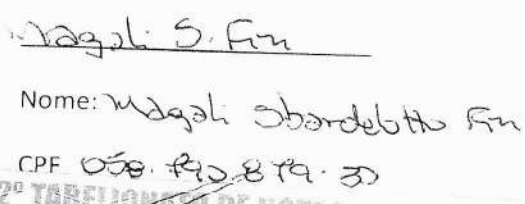 Magali S. Fin
Nome: Magali Sbardelotto Fin
CPF
2º TABELIONATO DE